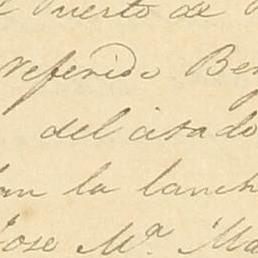 Puerto de
referido Ber
del citado
an la lanch
Jose Mª Ma